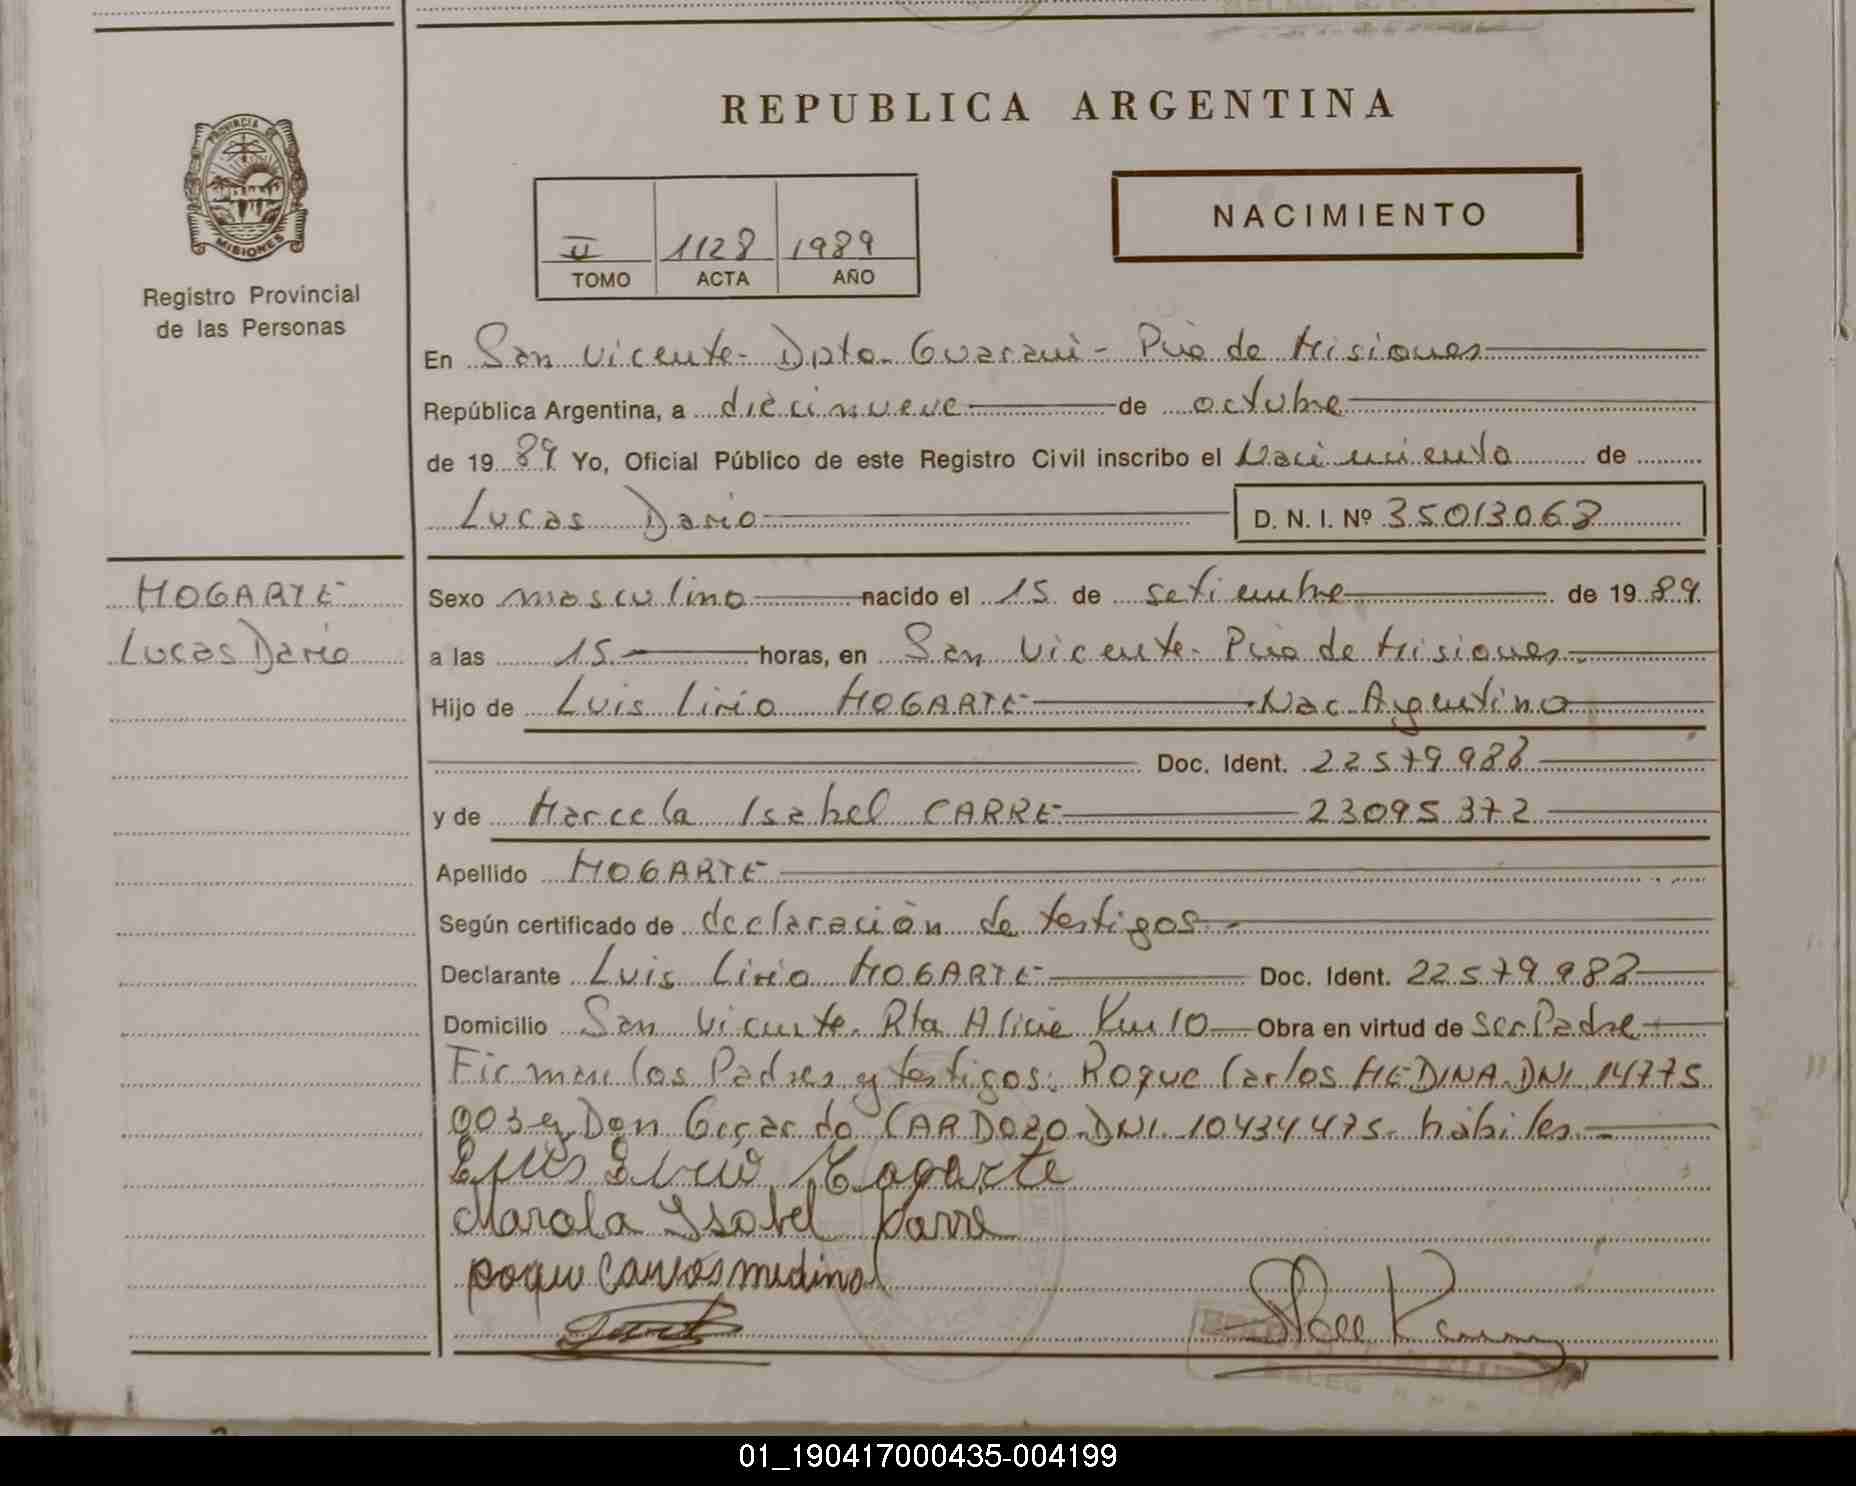 REPUBLICA ARGENTINA
PROVINCIA DE
MISIONES
Registro Provincial
de las Personas
NACIMIENTO
II 1128 1989
TOMO ACTA AÑO
En San Vicente - Dpto. Guaraní - Pcia de Misiones
República Argentina, a diecinueve de octubre
de 1989 Yo, Oficial Público de este Registro Civil inscribo el Nacimiento de
Lucas Dario D. N. I. Nº 35013063
HOGARTE
Lucas Dario
Sexo masculino nacido el 15 de setiembre de 1989
a las 15 horas, en San Vicente - Pcia de Misiones.
Hijo de Luis Lirio HOGARTE Nac. Argentino
Doc. Ident. 22.579.983
y de Marcela Isabel CARRE 23095372
Apellido HOGARTE
Según certificado de declaración de testigos.
Declarante Luis Lirio HOGARTE Doc. Ident. 22.579.983
Domicilio San Vicente. Rta Alicia Km 10 Obra en virtud de ser Padre
Firman los Padres y testigos: Roque Carlos MEDINA DNI 14775
003 y Don Gerardo CARDOZO DNI. 10434475 - hábiles.
Luis Lirio Hogarte
Marcela Isabel Carre
Roque Carlos medina
01_190417000435-004199